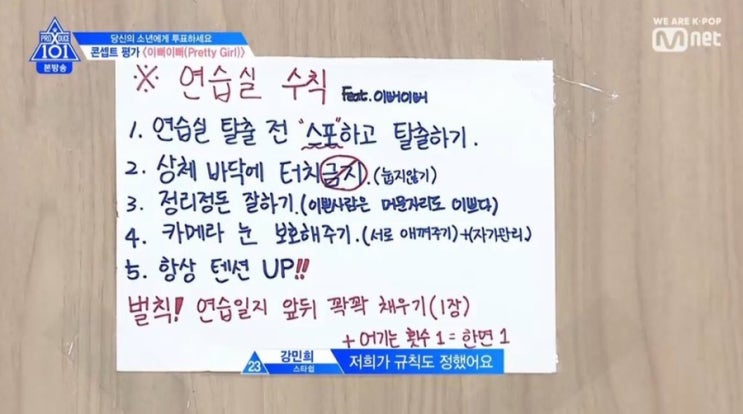 PRODUCE
X
101
본방송
당신의 소년에게 투표하세요
콘셉트 평가 <이뻐이뻐(Pretty Girl)>
WE ARE K-POP
Mnet
※ 연습실 수칙 Feat. 이뻐이뻐
1. 연습실 탈출 전 "스포"하고 탈출하기.
2. 상체 바닥에 터치 금지. (눕지않기)
3. 정리정돈 잘하기. (이쁜사람은 머문자리도 이쁘다)
4. 카메라 눈 보호해주기. (서로 애껴주기)+(자가관리.)
5. 항상 텐션 UP!!
벌칙! 연습일지 앞뒤 꽉꽉 채우기(1장)
+ 어기는 횟수 1 = 한면 1
23 강민희
스타쉽
저희가 규칙도 정했어요